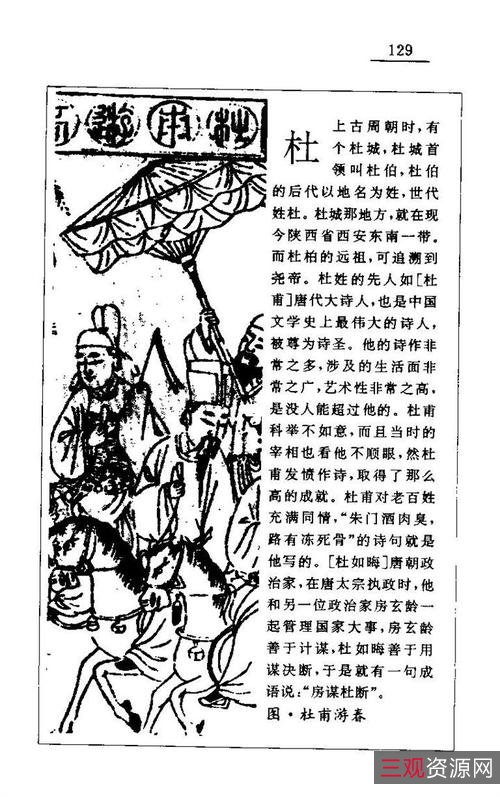 129
杜甫
杜
上古周朝时，有
个杜城，杜城首
领叫杜伯，杜伯
的后代以地名为姓，世代
姓杜。杜城那地方，就在现
今陕西省西安东南一带。
而杜柏的远祖，可追溯到
尧帝。杜姓的先人如[杜
甫]唐代大诗人，也是中国
文学史上最伟大的诗人，
被尊为诗圣。他的诗作非
常之多，涉及的生活面非
常之广，艺术性非常之高，
是没人能超过他的。杜甫
科举不如意，而且当时的
宰相也看他不顺眼，然杜
甫发愤作诗，取得了那么
高的成就。杜甫对老百姓
充满同情，“朱门酒肉臭，
路有冻死骨”的诗句就是
他写的。[杜如晦]唐朝政
治家，在唐太宗执政时，他
和另一位政治家房玄龄一
起管理国家大事，房玄龄
善于计谋，杜如晦善于用
谋决断，于是就有一句成
语说：“房谋杜断”。
图·杜甫游春
三观资源网